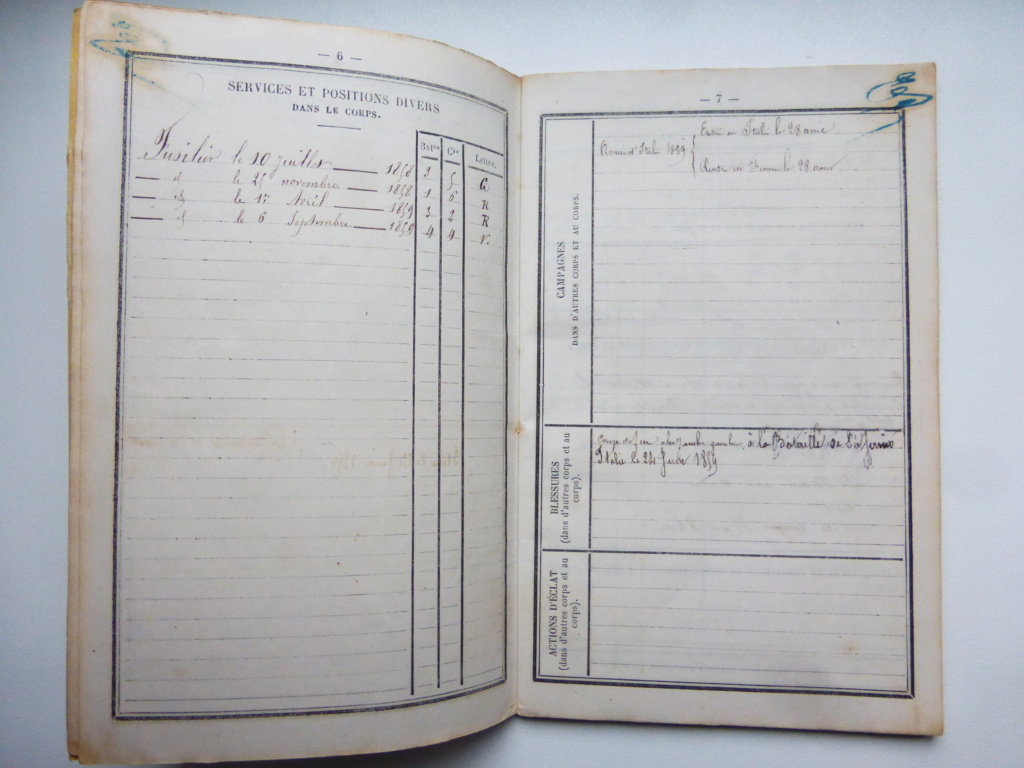 — 6 —
SERVICES ET POSITIONS DIVERS
DANS LE CORPS.
Batⁿ Cⁱᵉ Lettre.
Fusilier le 10 juillet 1858 2 5 a
d le 25 novembre 1858 1 6 R
d le 17 Avril 1859 3 2 R
d le 6 Septembre 1859 4 4
— 7 —
CAMPAGNES
DANS D'AUTRES CORPS ET AU CORPS.
Armée d'Italie 1859
Entré en Italie le 28
Rentré en France le 28
BLESSURES
(dans d'autres corps et au
corps).
Coup de feu à la jambe gauche à la Bataille de
Italie le 24 Juin 1859
ACTIONS D'ÉCLAT
(dans d'autres corps et au
corps).